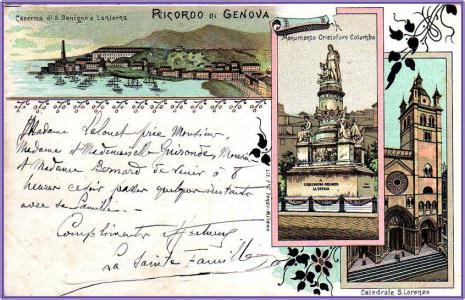 Caserma di S. Benigno e Lanterna
RICORDO DI GENOVA
Monumento Cristoforo Colombo
Madame Lalouet prie Monsieur,
Madame et Mademoiselle
et Madame Bernard de venir à 8
heures ce soir passer quelques instants
avec sa famille.
Compliments
La Sainte Famille
Cattedrale S. Lorenzo